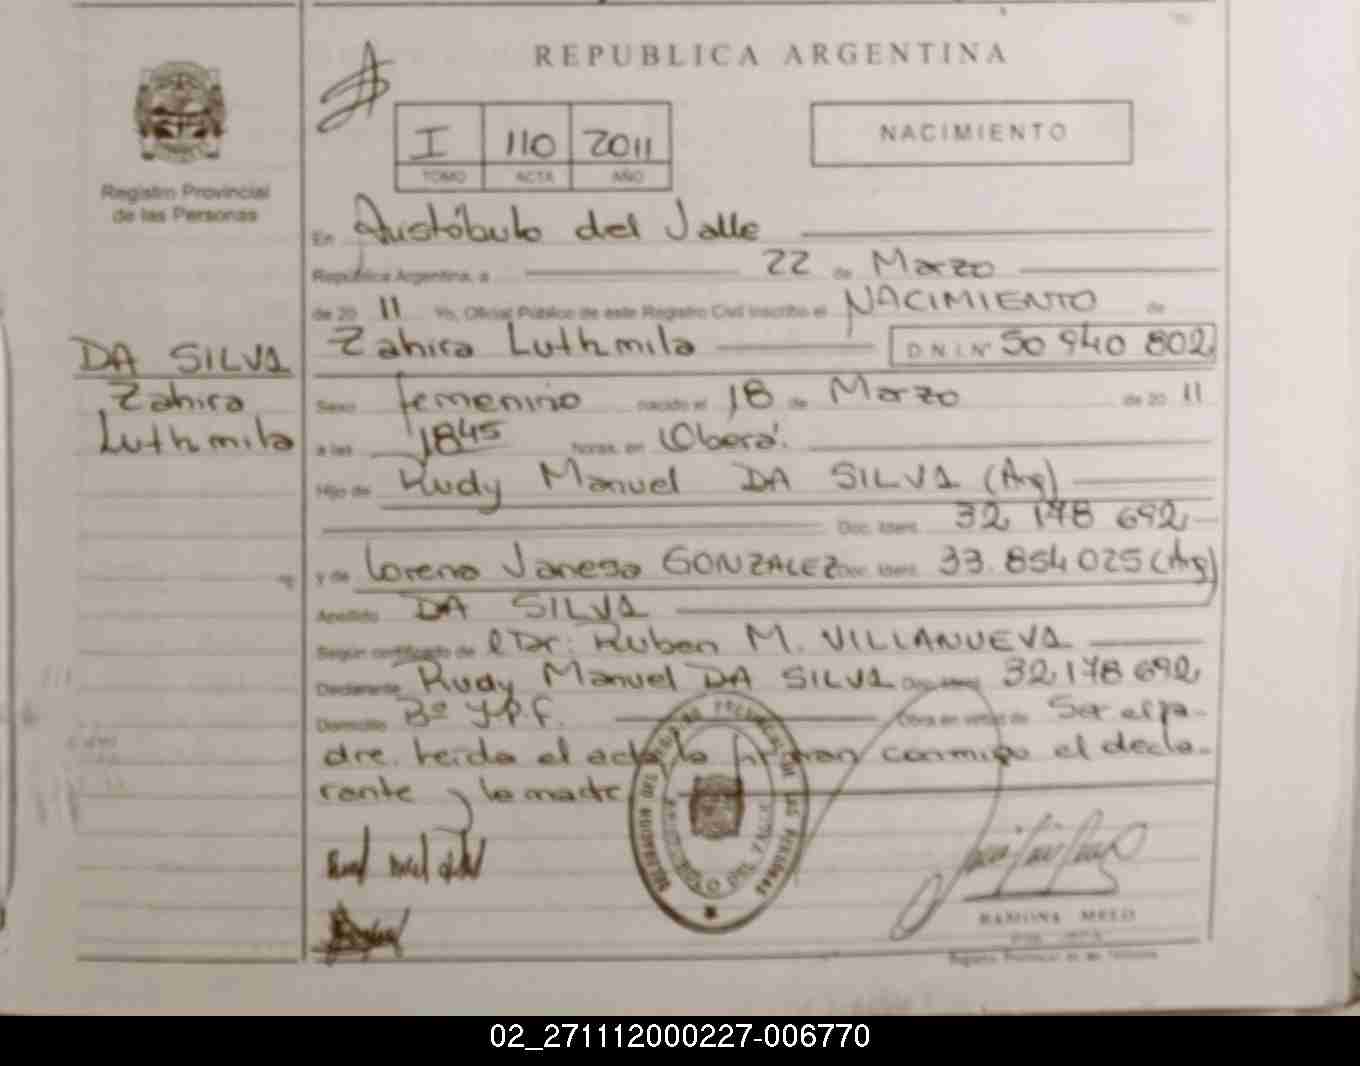 REPUBLICA ARGENTINA
I 110 2011
TOMO ACTA AÑO
NACIMIENTO
Registro Provincial
de las Personas
En Aristóbulo del Valle
República Argentina, a 22 de Marzo
de 20 11 Yo, Oficial Público de este Registro Civil inscribo el NACIMIENTO de
Zahira Luthmila D.N.I.Nº 50 940 802
DA SILVA
Zahira
Luthmila
Sexo femenino nacido el 18 de Marzo de 20 11
a las 1845 horas, en Oberá.
Hijo de Rudy Manuel DA SILVA (Arg)
Doc. Ident. 32 178 692
y de Lorena Vanesa GONZALEZ Doc. Ident. 33.854 025 (Arg)
Apellido DA SILVA
Según certificado de el Dr: Ruben M. VILLANUEVA
Declarante Rudy Manuel DA SILVA Doc. Ident. 32 178 692
Domicilio Bº Y.P.F. Obra en virtud de Ser el pa-
dre. Leída el acta, la firman conmigo el decla-
rante y la madre
RAMONA MELO
Registro Provincial de las Personas
02_271112000227-006770